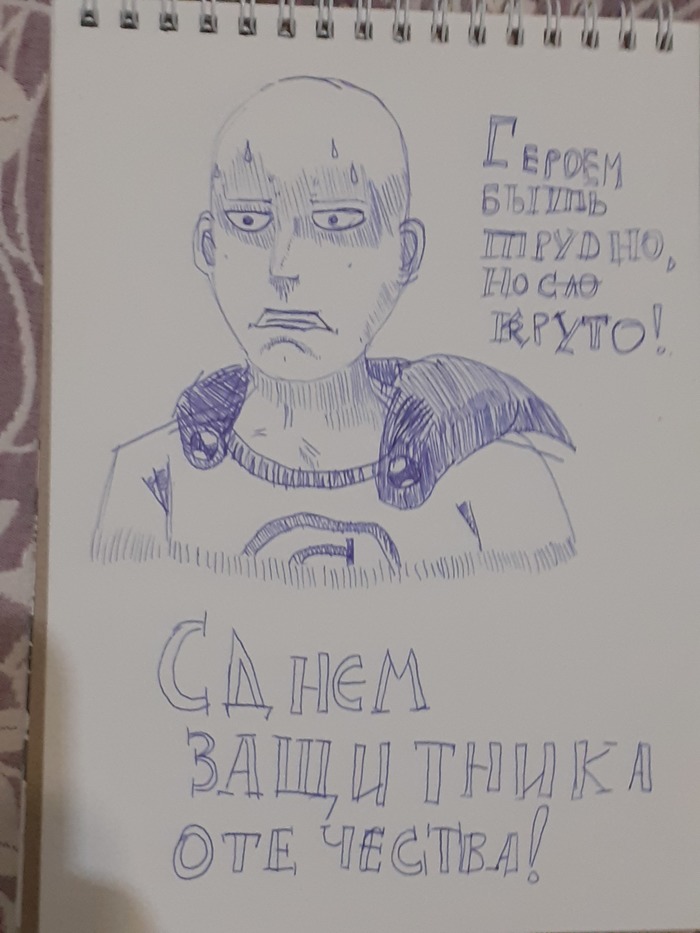 Героем
быть
трудно,
но сло
круто!
С Днем
защитника
отечества!